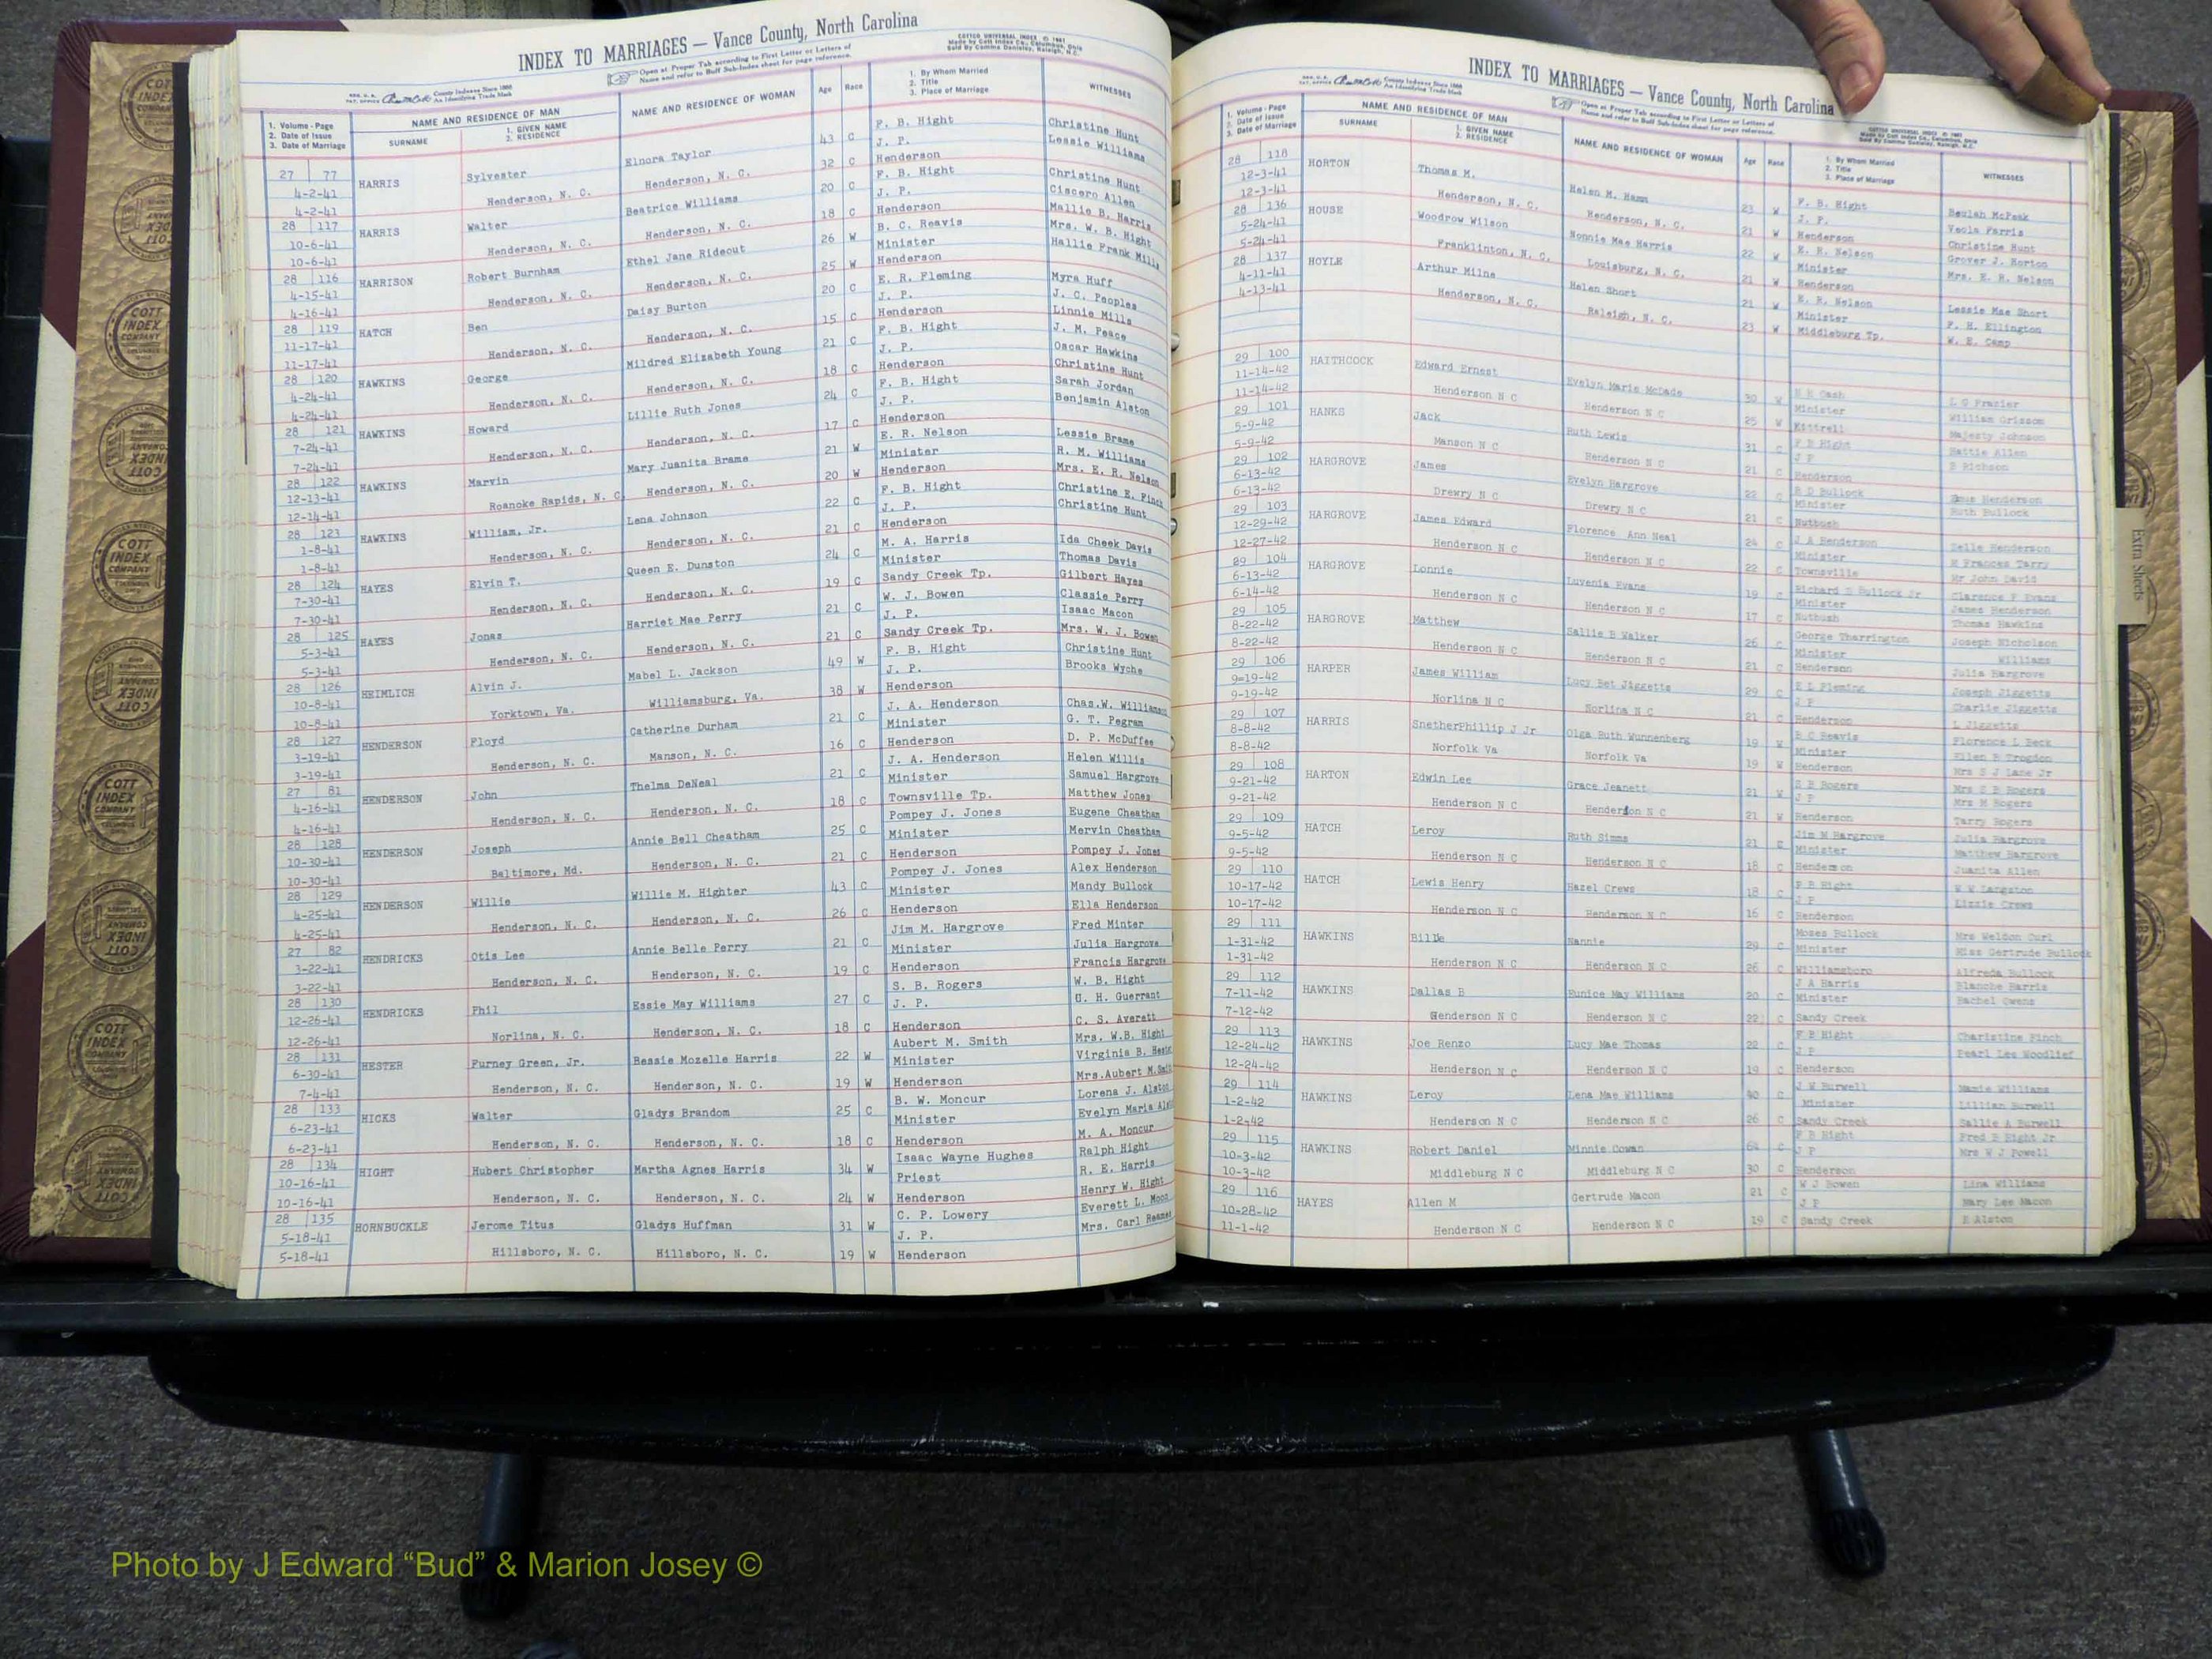 INDEX TO MARRIAGES — Vance County, North Carolina
Open at Proper Tab according to First Letter or Letters of
Name and refer to Buff Sub-Index sheet for page reference.
COTTCO UNIVERSAL INDEX
Made by Cott Index Co., Columbus, Ohio
County Indexes Since 1888
An Identifying Trade Mark
1. Volume - Page
2. Date of Issue
3. Date of Marriage
NAME AND RESIDENCE OF MAN
SURNAME
1. GIVEN NAME
2. RESIDENCE
NAME AND RESIDENCE OF WOMAN
Age Race
1. By Whom Married
2. Title
3. Place of Marriage
WITNESSES
27 77 HARRIS Sylvester Elnora Taylor 43 C F. B. Hight Christine Hunt
4-2-41 Henderson, N. C. Henderson, N. C. 32 C J. P. Lessie Williams
4-2-41 Henderson
28 117 HARRIS Walter Beatrice Williams 20 C F. B. Hight Christine Hunt
10-6-41 Henderson, N. C. Henderson, N. C. 18 C J. P. Ciscero Allen
10-6-41 Henderson Mallie B. Harris
28 116 HARRISON Robert Burnham Ethel Jane Rideout 26 W B. C. Reavis Mrs. W. B. Hight
4-15-41 Henderson, N. C. Henderson, N. C. 25 W Minister Hallie Frank Mills
4-16-41 Henderson
28 119 HATCH Ben Daisy Burton 20 C E. R. Fleming Myra Huff
11-17-41 Henderson, N. C. Henderson, N. C. 15 C J. P. J. C. Peoples
11-17-41 Henderson Linnie Mills
28 120 HAWKINS George Mildred Elizabeth Young 21 C F. B. Hight J. M. Peace
4-24-41 Henderson, N. C. Henderson, N. C. 18 C J. P. Oscar Hawkins
4-24-41 Henderson Christine Hunt
28 121 HAWKINS Howard Lillie Ruth Jones 24 C F. B. Hight Sarah Jordan
7-24-41 Henderson, N. C. Henderson, N. C. 17 C J. P. Benjamin Alston
7-24-41 Henderson
28 122 HAWKINS Marvin Mary Juanita Brame 21 W E. R. Nelson Lessie Brame
12-13-41 Roanoke Rapids, N. C. Henderson, N. C. 20 W Minister R. M. Williams
12-14-41 Henderson Mrs. E. R. Nelson
28 123 HAWKINS William, Jr. Lena Johnson 22 C F. B. Hight Christine E. Finch
1-8-41 Henderson, N. C. Henderson, N. C. 21 C J. P. Christine Hunt
1-8-41 Henderson
28 124 HAYES Elvin T. Queen E. Dunston 24 C M. A. Harris Ida Cheek Davis
7-30-41 Henderson, N. C. Henderson, N. C. 19 C Minister Thomas Davis
7-30-41 Sandy Creek Tp. Gilbert Hayes
28 125 HAYES Jonas Harriet Mae Perry 21 C W. J. Bowen Classie Perry
5-3-41 Henderson, N. C. Henderson, N. C. 21 C J. P. Isaac Macon
5-3-41 Sandy Creek Tp. Mrs. W. J. Bowen
28 126 HEIMLICH Alvin J. Mabel L. Jackson 49 W F. B. Hight Christine Hunt
10-8-41 Yorktown, Va. Williamsburg, Va. 38 W J. P. Brooks Wyche
10-8-41 Henderson
28 127 HENDERSON Floyd Catherine Durham 21 C J. A. Henderson Chas.W. Williamson
3-19-41 Henderson, N. C. Manson, N. C. 16 C Minister G. T. Pegram
3-19-41 Henderson D. P. McDuffee
27 81 HENDERSON John Thelma DeNeal 21 C J. A. Henderson Helen Willis
4-16-41 Henderson, N. C. Henderson, N. C. 18 C Minister Samuel Hargrove
4-16-41 Townsville Tp. Matthew Jones
28 128 HENDERSON Joseph Annie Bell Cheatham 25 C Pompey J. Jones Eugene Cheatham
10-30-41 Baltimore, Md. Henderson, N. C. 21 C Minister Mervin Cheatham
10-30-41 Henderson Pompey J. Jones
28 129 HENDERSON Willie Willie M. Highter 43 C Pompey J. Jones Alex Henderson
4-25-41 Henderson, N. C. Henderson, N. C. 26 C Minister Mandy Bullock
4-25-41 Henderson Ella Henderson
27 82 HENDRICKS Otis Lee Annie Belle Perry 21 C Jim M. Hargrove Fred Minter
3-22-41 Henderson, N. C. Henderson, N. C. 19 C Minister Julia Hargrove
3-22-41 Henderson Francis Hargrove
28 130 HENDRICKS Phil Essie May Williams 27 C S. B. Rogers W. B. Hight
12-26-41 Norlina, N. C. Henderson, N. C. 18 C J. P. U. H. Guerrant
12-26-41 Henderson C. S. Averett
28 131 HESTER Furney Green, Jr. Bessie Mozelle Harris 22 W Aubert M. Smith Mrs. W.B. Hight
6-30-41 Henderson, N. C. Henderson, N. C. 19 W Minister Virginia B. Hester
7-4-41 Henderson Mrs.Aubert M.Smith
28 133 HICKS Walter Gladys Brandom 25 C B. W. Moncur Lorena J. Alston
6-23-41 Henderson, N. C. Henderson, N. C. 18 C Minister Evelyn Maria
6-23-41 Henderson M. A. Moncur
28 134 HIGHT Hubert Christopher Martha Agnes Harris 34 W Isaac Wayne Hughes Ralph Hight
10-16-41 Henderson, N. C. Henderson, N. C. 24 W Priest R. E. Harris
10-16-41 Henderson Henry W. Hight
28 135 HORNBUCKLE Jerome Titus Gladys Huffman 31 W C. P. Lowery Everett L.
5-18-41 Hillsboro, N. C. Hillsboro, N. C. 19 W J. P. Mrs. Carl
5-18-41 Henderson
INDEX TO MARRIAGES — Vance County, North Carolina
Open at Proper Tab according to First Letter or Letters of
Name and refer to Buff Sub-Index sheet for page reference.
County Indexes Since 1888
An Identifying Trade Mark
1. Volume - Page
2. Date of Issue
3. Date of Marriage
NAME AND RESIDENCE OF MAN
SURNAME
1. GIVEN NAME
2. RESIDENCE
NAME AND RESIDENCE OF WOMAN
Age Race
1. By Whom Married
2. Title
3. Place of Marriage
WITNESSES
28 118 HORTON Thomas M. Helen M. Hamm 23 W F. B. Hight Beulah McPeak
12-3-41 Henderson, N. C. Henderson, N. C. 21 W J. P. Veola Farris
12-3-41 Henderson Christine Hunt
28 136 HOUSE Woodrow Wilson Nonnie Mae Harris 22 W E. R. Nelson Grover J. Horton
5-24-41 Franklinton, N. C. Louisburg, N. C. 21 W Minister Mrs. E. R. Nelson
5-24-41 Henderson
28 137 HOYLE Arthur Milne Helen Short 21 W E. R. Nelson Lessie Mae Short
4-11-41 Henderson, N. C. Raleigh, N. C. 23 W Minister F. H. Ellington
4-13-41 Middleburg Tp. W. E. Camp
29 100 HAITHCOCK Edward Ernest Evelyn Marie McDade 30 W Cash L G Frazier
11-14-42 Henderson N C Henderson N C 25 W Minister William Grissom
11-14-42 Kittrell
29 101 HANKS Jack Ruth Lewis 31 C F B Hight Majesty Johnson
5-9-42 Manson N C Henderson N C 21 C J P Hattie Allen
5-9-42 Henderson B Richson
29 102 HARGROVE James Evelyn Hargrove 22 C Bullock Henderson
6-13-42 Drewry N C Drewry N C 21 C Minister Ruth Bullock
6-13-42 Nutbush
29 103 HARGROVE James Edward Florence Ann Neal 24 C J A Henderson Belle Henderson
12-29-42 Henderson N C Henderson N C 22 C Minister Frances Terry
12-27-42 Townsville Mr John David
29 104 HARGROVE Lonnie Luvenia Evans 19 C Richard Bullock Jr Clarence P Evans
6-13-42 Henderson N C Henderson N C 17 C Minister James Henderson
6-14-42 Nutbush Thomas Hawkins
29 105 HARGROVE Matthew Sallie B Walker 26 C George Tharrington Joseph Nicholson
8-22-42 Henderson N C Henderson N C 21 C Minister Williams
8-22-42 Henderson Julia Hargrove
29 106 HARPER James William Lucy Bet Jiggetts 29 C E L Fleming Joseph Jiggetts
9-19-42 Norlina N C Norlina N C 21 C J P Charlie Jiggetts
9-19-42 Henderson L Jiggetts
29 107 HARRIS SnetherPhillip J Jr Olga Ruth Wunnenberg 19 W B C Reavis Florence L Beck
8-8-42 Norfolk Va Norfolk Va 19 W Minister Ellen B Trogdon
8-8-42 Henderson Mrs S J Lane Jr
29 108 HARTON Edwin Lee Grace Jeanett 21 W S B Rogers Mrs S B Rogers
9-21-42 Henderson N C Henderson N C 21 W J P Mrs M Rogers
9-21-42 Henderson Terry Rogers
29 109 HATCH Leroy Ruth Simms 21 C Jim M Hargrove Julia Hargrove
9-5-42 Henderson N C Henderson N C 18 C Minister Matthew Hargrove
9-5-42 Henderson Juanita Allen
29 110 HATCH Lewis Henry Hazel Crews 18 C F B Hight W W Langston
10-17-42 Henderson N C Henderson N C 16 C J P Lizzie Crews
10-17-42 Henderson
29 111 HAWKINS Nannie 29 C Moses Bullock Mrs Weldon Curl
1-31-42 Henderson N C Henderson N C 26 C Minister Miss Gertrude Bullock
1-31-42 Williamsboro Alfreda Bullock
29 112 HAWKINS Dallas B Eunice May Williams 20 C J A Harris Blanche Harris
7-11-42 Henderson N C Henderson N C 22 C Minister Rachel Owens
7-12-42 Sandy Creek
29 113 HAWKINS Joe Renzo Lucy Mae Thomas 22 C F B Hight Charistine Finch
12-24-42 Henderson N C Henderson N C 19 C J P Pearl Lee Woodlief
12-24-42 Henderson
29 114 HAWKINS Leroy Lena Mae Williams 40 C J W Burwell Mamie Williams
1-2-42 Henderson N C Henderson N C 26 C Minister Lillian Burwell
1-2-42 Sandy Creek Sallie A Burwell
29 115 HAWKINS Robert Daniel Minnie Cowan 64 C F B Hight Fred B Hight Jr
10-3-42 Middleburg N C Middleburg N C 30 C J P Mrs W J Powell
10-3-42 Henderson
29 116 HAYES Allen M Gertrude Macon 21 C W J Bowen Lina Williams
10-28-42 Henderson N C Henderson N C 19 C J P Mary Lee Macon
11-1-42 Sandy Creek E Alston
Extra Sheets
COTT INDEX COMPANY
Photo by J Edward “Bud” & Marion Josey ©